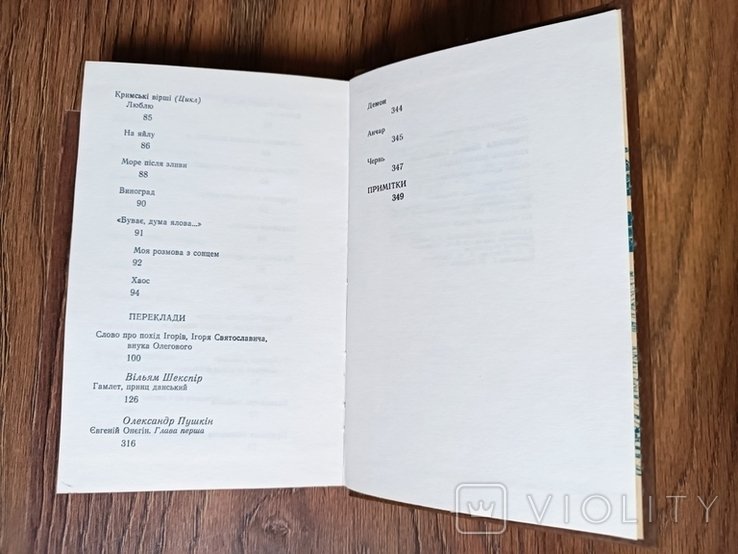 Кримські вірші (Цикл)
Люблю
85
На яйлу
86
Море після зливи
88
Виноград
90
«Буває, дума ялова...»
91
Моя розмова з сонцем
92
Хаос
94
ПЕРЕКЛАДИ
Слово про похід Ігорів, Ігоря Святославича,
внука Олегового
100
Вільям Шекспір
Гамлет, принц данський
126
Олександр Пушкін
Євгеній Онєгін. Глава перша
316
Демон
344
Анчар
345
Червь
347
ПРИМІТКИ
349
VIOLITY